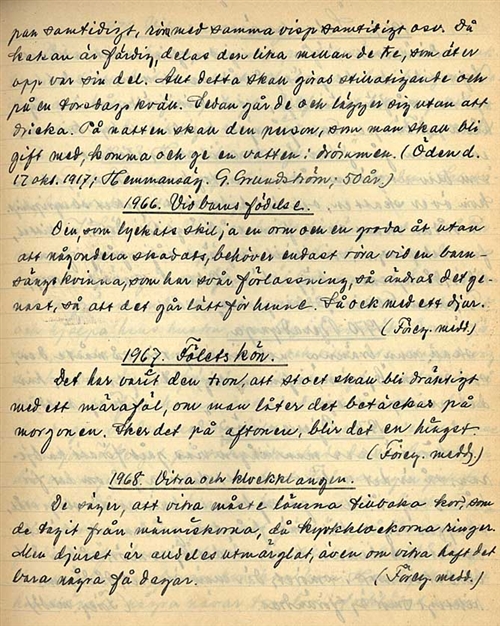 pan samtidigt, rör med samma visp samtidigt osv. Då
kakan är färdig, delas den lika mellan de tre, som äter
opp var sin del. Allt detta skall göras stillatigande och
på en torsdagskväll. Sedan går de och lägger sig utan att
dricka. På natten skall den person, som man skall bli
gift med, komma och ge en vatten i drömmen. (Öden d.
17 okt. 1917; Hemmansäg. G. Grundström; 50 år.)
1966. Vid barns födelse.
Den, som lyckats skilja en orm och en groda åt utan
att någondera skadats, behöver endast röra vid en barn-
sängskvinna, som har svår förlossning, så ändras det ge-
nast, så att det går lätt för henne. Så ock med ett djur.
(Föreg. medd.)
1967. Fölets kön.
Det har varit den tron, att stoet skall bli dräktigt
med ett märaföl, om man låter det betäckas på
morgonen. Sker det på aftonen, blir det en hingst
(Föreg. medd.)
1968. Vitra och klockklangen.
De säger, att vitra måste lämna tillbaka kor, som
de tagit från människorna, då kyrkklockorna ringer.
Men djuret är alldeles utmärglat, även om vitra haft det
bara några få dagar. (Föreg. medd.)